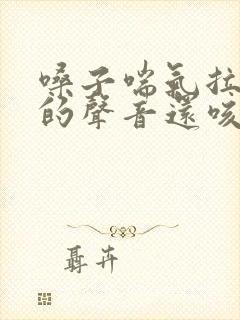 嗓子喘氣拉
的聲音還咳
聶卉